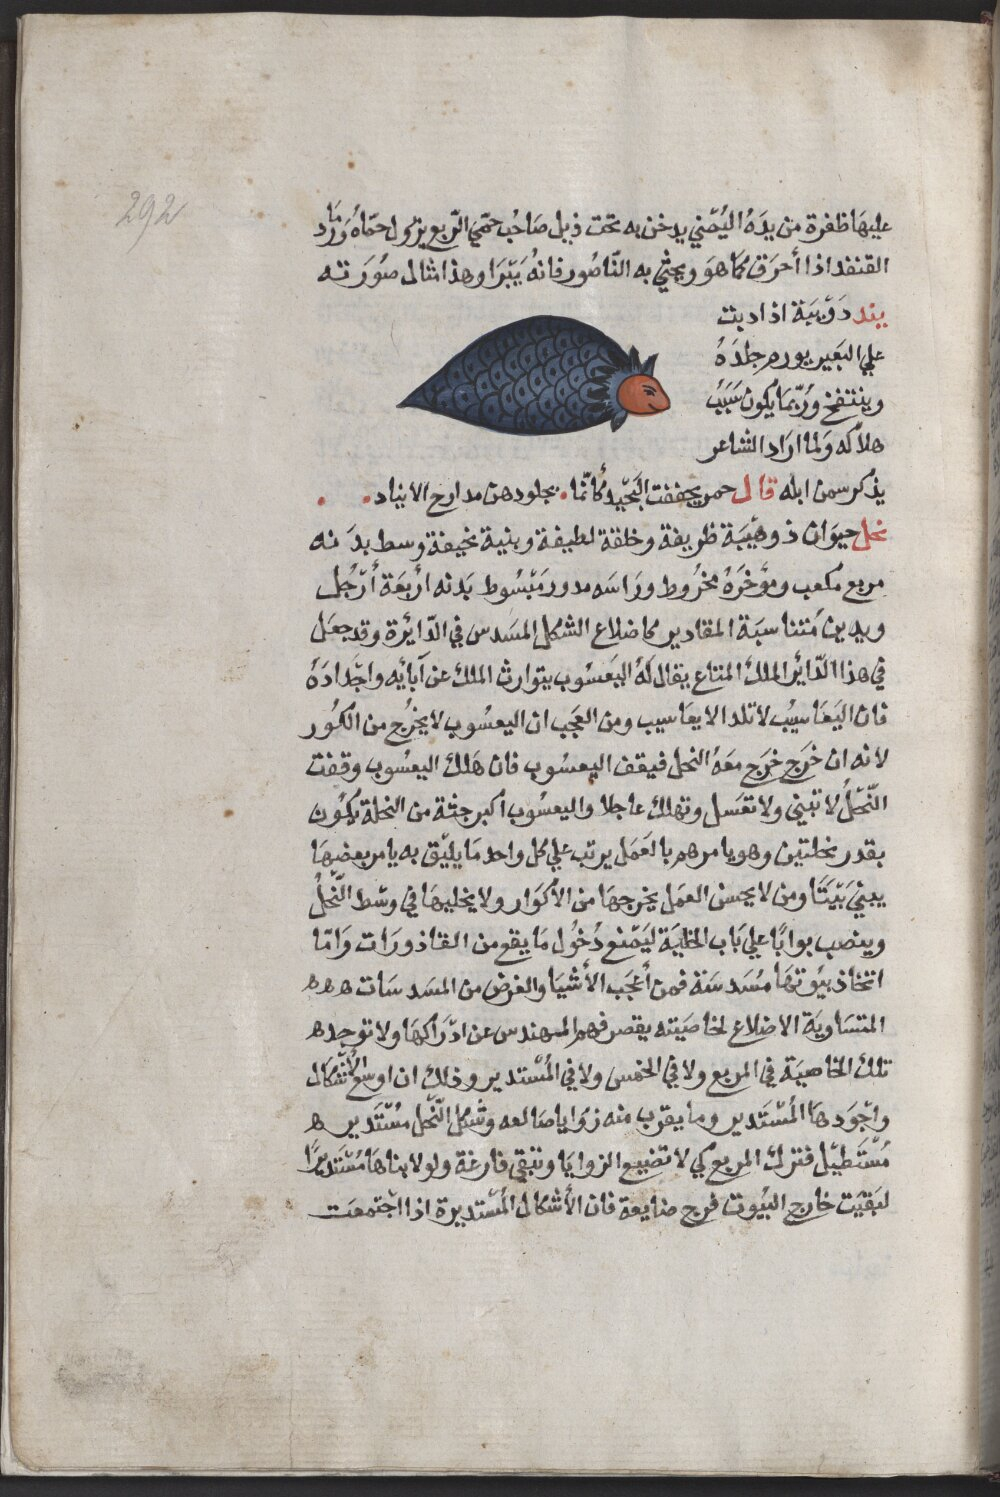 292
عليها ظفرة من يده اليمني يدخن به تحت ذيل صاحب حمّي الرّبع يزول حمّاه ورماد
القنفد اذا أحرق كما هو ويحشي به النّاصُور فانهُ يَبّرا وهذا مثال صُورَته
دوَيبَة اذا دبت
علي البَعير يورم جلدَهُ
وينتفخ ورُبّما يكون سَبَبُ
هلاكه ولما اراد الشاعر
يذكر سمن ابله قال حمر بجلودهن مدارج الانبار
نحل حيوان ذو هيَبَة ظريفة وخلقة لطيفة وبنية نحيفة وسط بدَنه
مربع مكعب ومؤخرَهُ مخُروط ورَاسَه مدور مَبْسُوط بَدنه أربعَة أرْجُل
ويدين مُتناسبَة المقادير كاضلاع الشكل المسَدس في الدّائرة وقد جعَل
في هذا الدّائر الملك المتاع يقال لهُ اليَعسُوب يتوارث الملك عن آبائه واجْدادَهُ
فان اليَعَاسيُب لا تلد الا يعَاسيب ومن العَجب ان اليعسُوب لا يخرُج من الكُور
لانه ان خَرج خرَج معَهُ النحل فيقف اليعسُوب فان هَلك اليعسُوب وقفت
النّحْلُ لا تبني ولا تعَسل وتهلك عاجلا واليعسُوب اكبر جثة من النحلة يكُون
بقدر نحلتين وهو يامرهم بالعَمَل يرتب علي كل واحد مَا يليْق به يامر بعضهَا
يبني بَيْتًا ومن لا يحسن العمَل يخرجهَا من الأكوَار ولا يخليهَا في وسْط النّحلُ
وينصب بوابًا علي بَاب الخليَة ليَمْنع دُخُول مَا يقع من القاذورَات وَامّا
اتخاذ بيُوتهَا مسُدسَة فمن أعجَب الأشيَا والغرض من المسَدسَات ه ه ه
المتسَاويَة الاضلاع لخاصيَته يقصر فهم المهندس عن ادْرَاكهَا ولا توجد ه
تلك الخاصيَة في المربع ولا في الخمس ولا في المُسْتدير وذلك ان اوسع الأشكال
واجْوَدهَا المُسْتَدير وما يقرب منه زوَايا ضالعه وشكل النّحل مُسْتَدير ه
مُسْتَطيْل فترك المربع كي لا تضيع الزوايَا وتبقي فارغة ولو لا بناها مُسْتديرًا
لبَقيَت خارج البيُوت فرج ضايعة فان الأشكال المُسْتديرة اذا اجْتمعَت